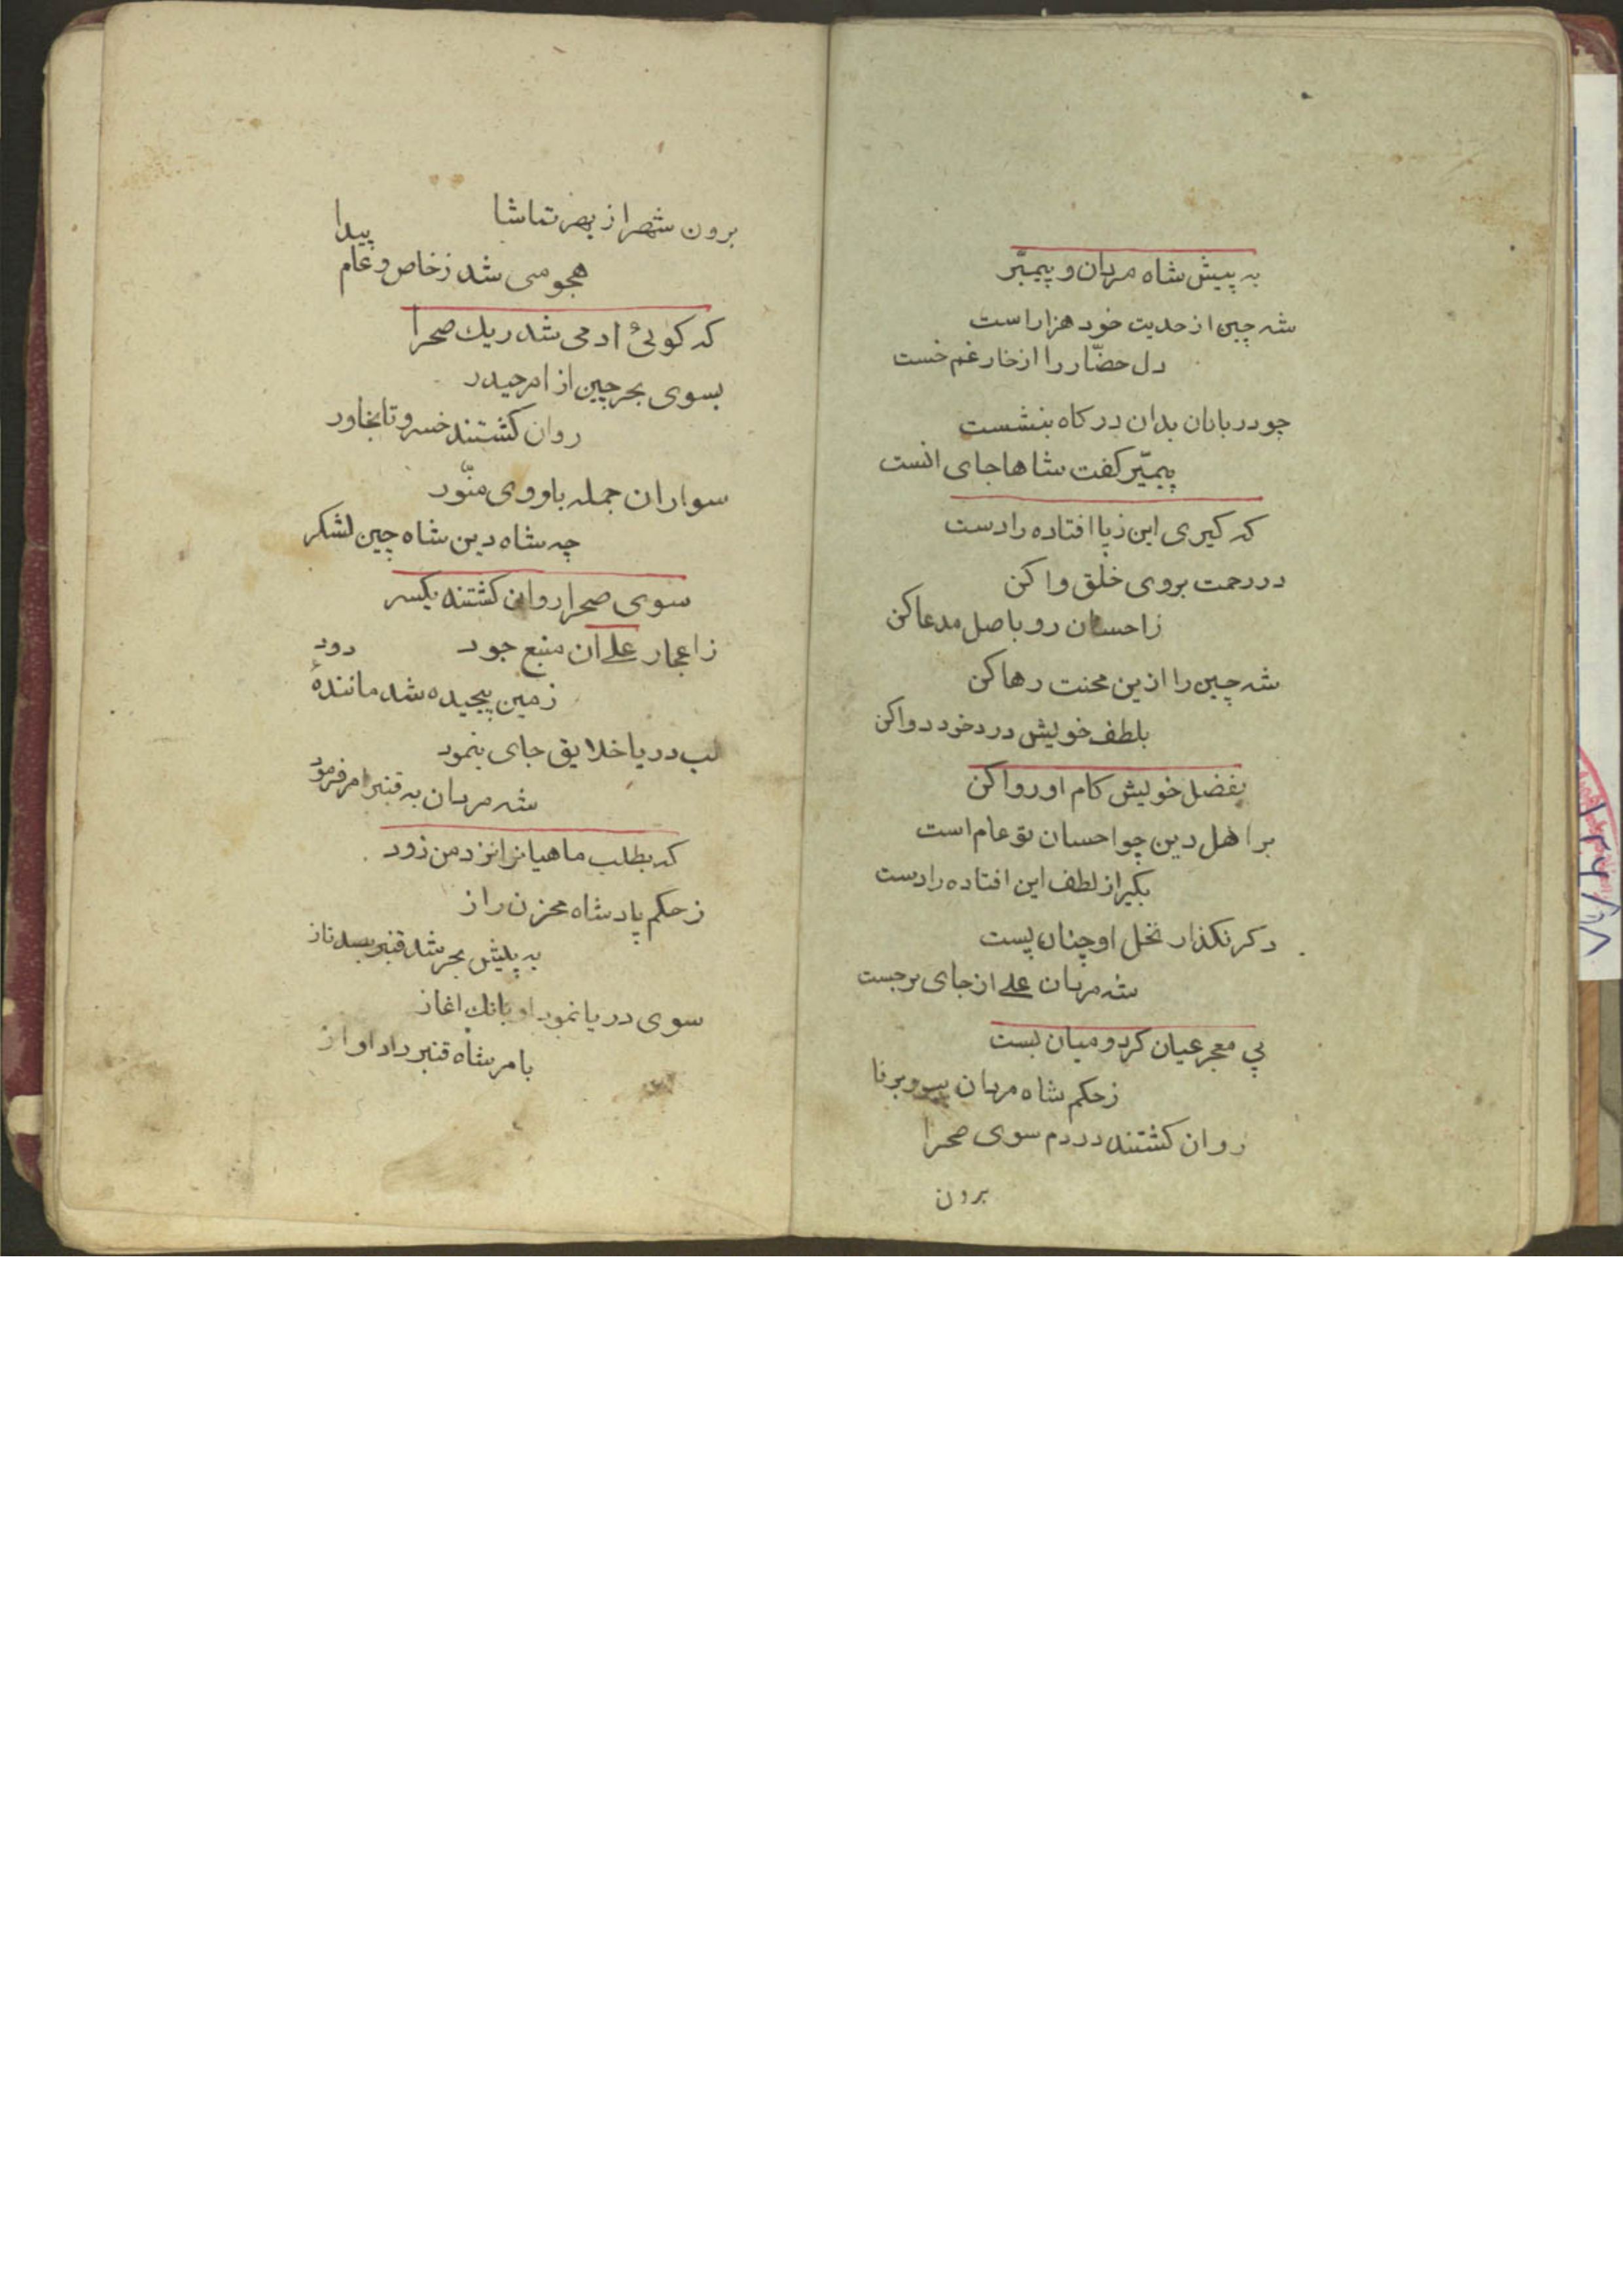 به پیش شاه مردان و پیمبّر
شه چین از حدیت خود هزاراست
دل حضّار را از خار غم خست
چو دربانان بدان درکاه بنشست
پیمبّر کفت شاها جای انست
که کیری این زپا افتاده را دست
در رحمت بروی خلق وا کن
زاحسان رو باصل مدعا کن
شه چین را ازین محنت رها کن
بلطف خویش درد خود دوا کن
بفضل خویش کام او روا کن
بر اهل دین چو احسان تو عام است
بکیر از لطف این افتاده را دست
دکر نکذار نخل او چنان پست
شه مردان علی از جای برجست
پی معجر عیان کرد و میان بست
زحکم شاه مردان پیر و برنا
روان کشتند در دم سوی صحرا
برون
برون شهر از بهر تماشا
هجومی شد زخاص و عام پیدا
که کوئی ادمی شد ریك صحرا
بسوی بحر چین از امر حیدر
روان کشتند خسرو تا بخاور
سواران جمله با روی منّور
چه شاه دین شاه چین لشکر
سوی صحرا روان کشتند یکسر
زاعجاز علی ان منبع جود
زمین پیچیده شد مانندهٔ دود
لب دریا خلایق جای بنمود
شه مردان به قنبر امر فرمود
که بطلب ماهیانرا نزد من زود
زحکم پادشاه مخزن راز
به پیش بحر شد قنبر بصد ناز
سوی دریا نمود او بانك اغاز
بامر شاه قنبر داد اواز